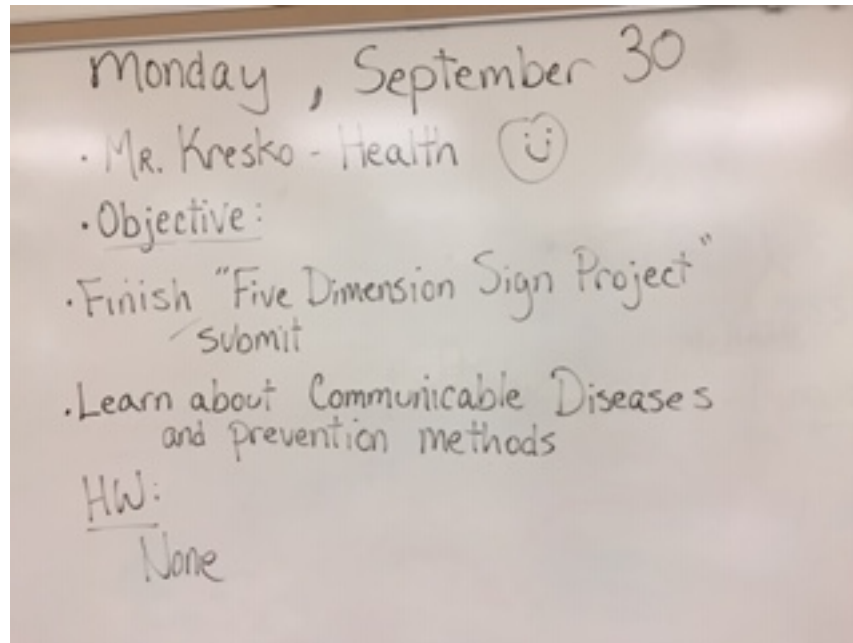 Monday, September 30
· MR. Kresko - Health
· Objective:
· Finish "Five Dimension Sign Project"
/submit
· Learn about Communicable Diseases
and prevention methods
HW:
None